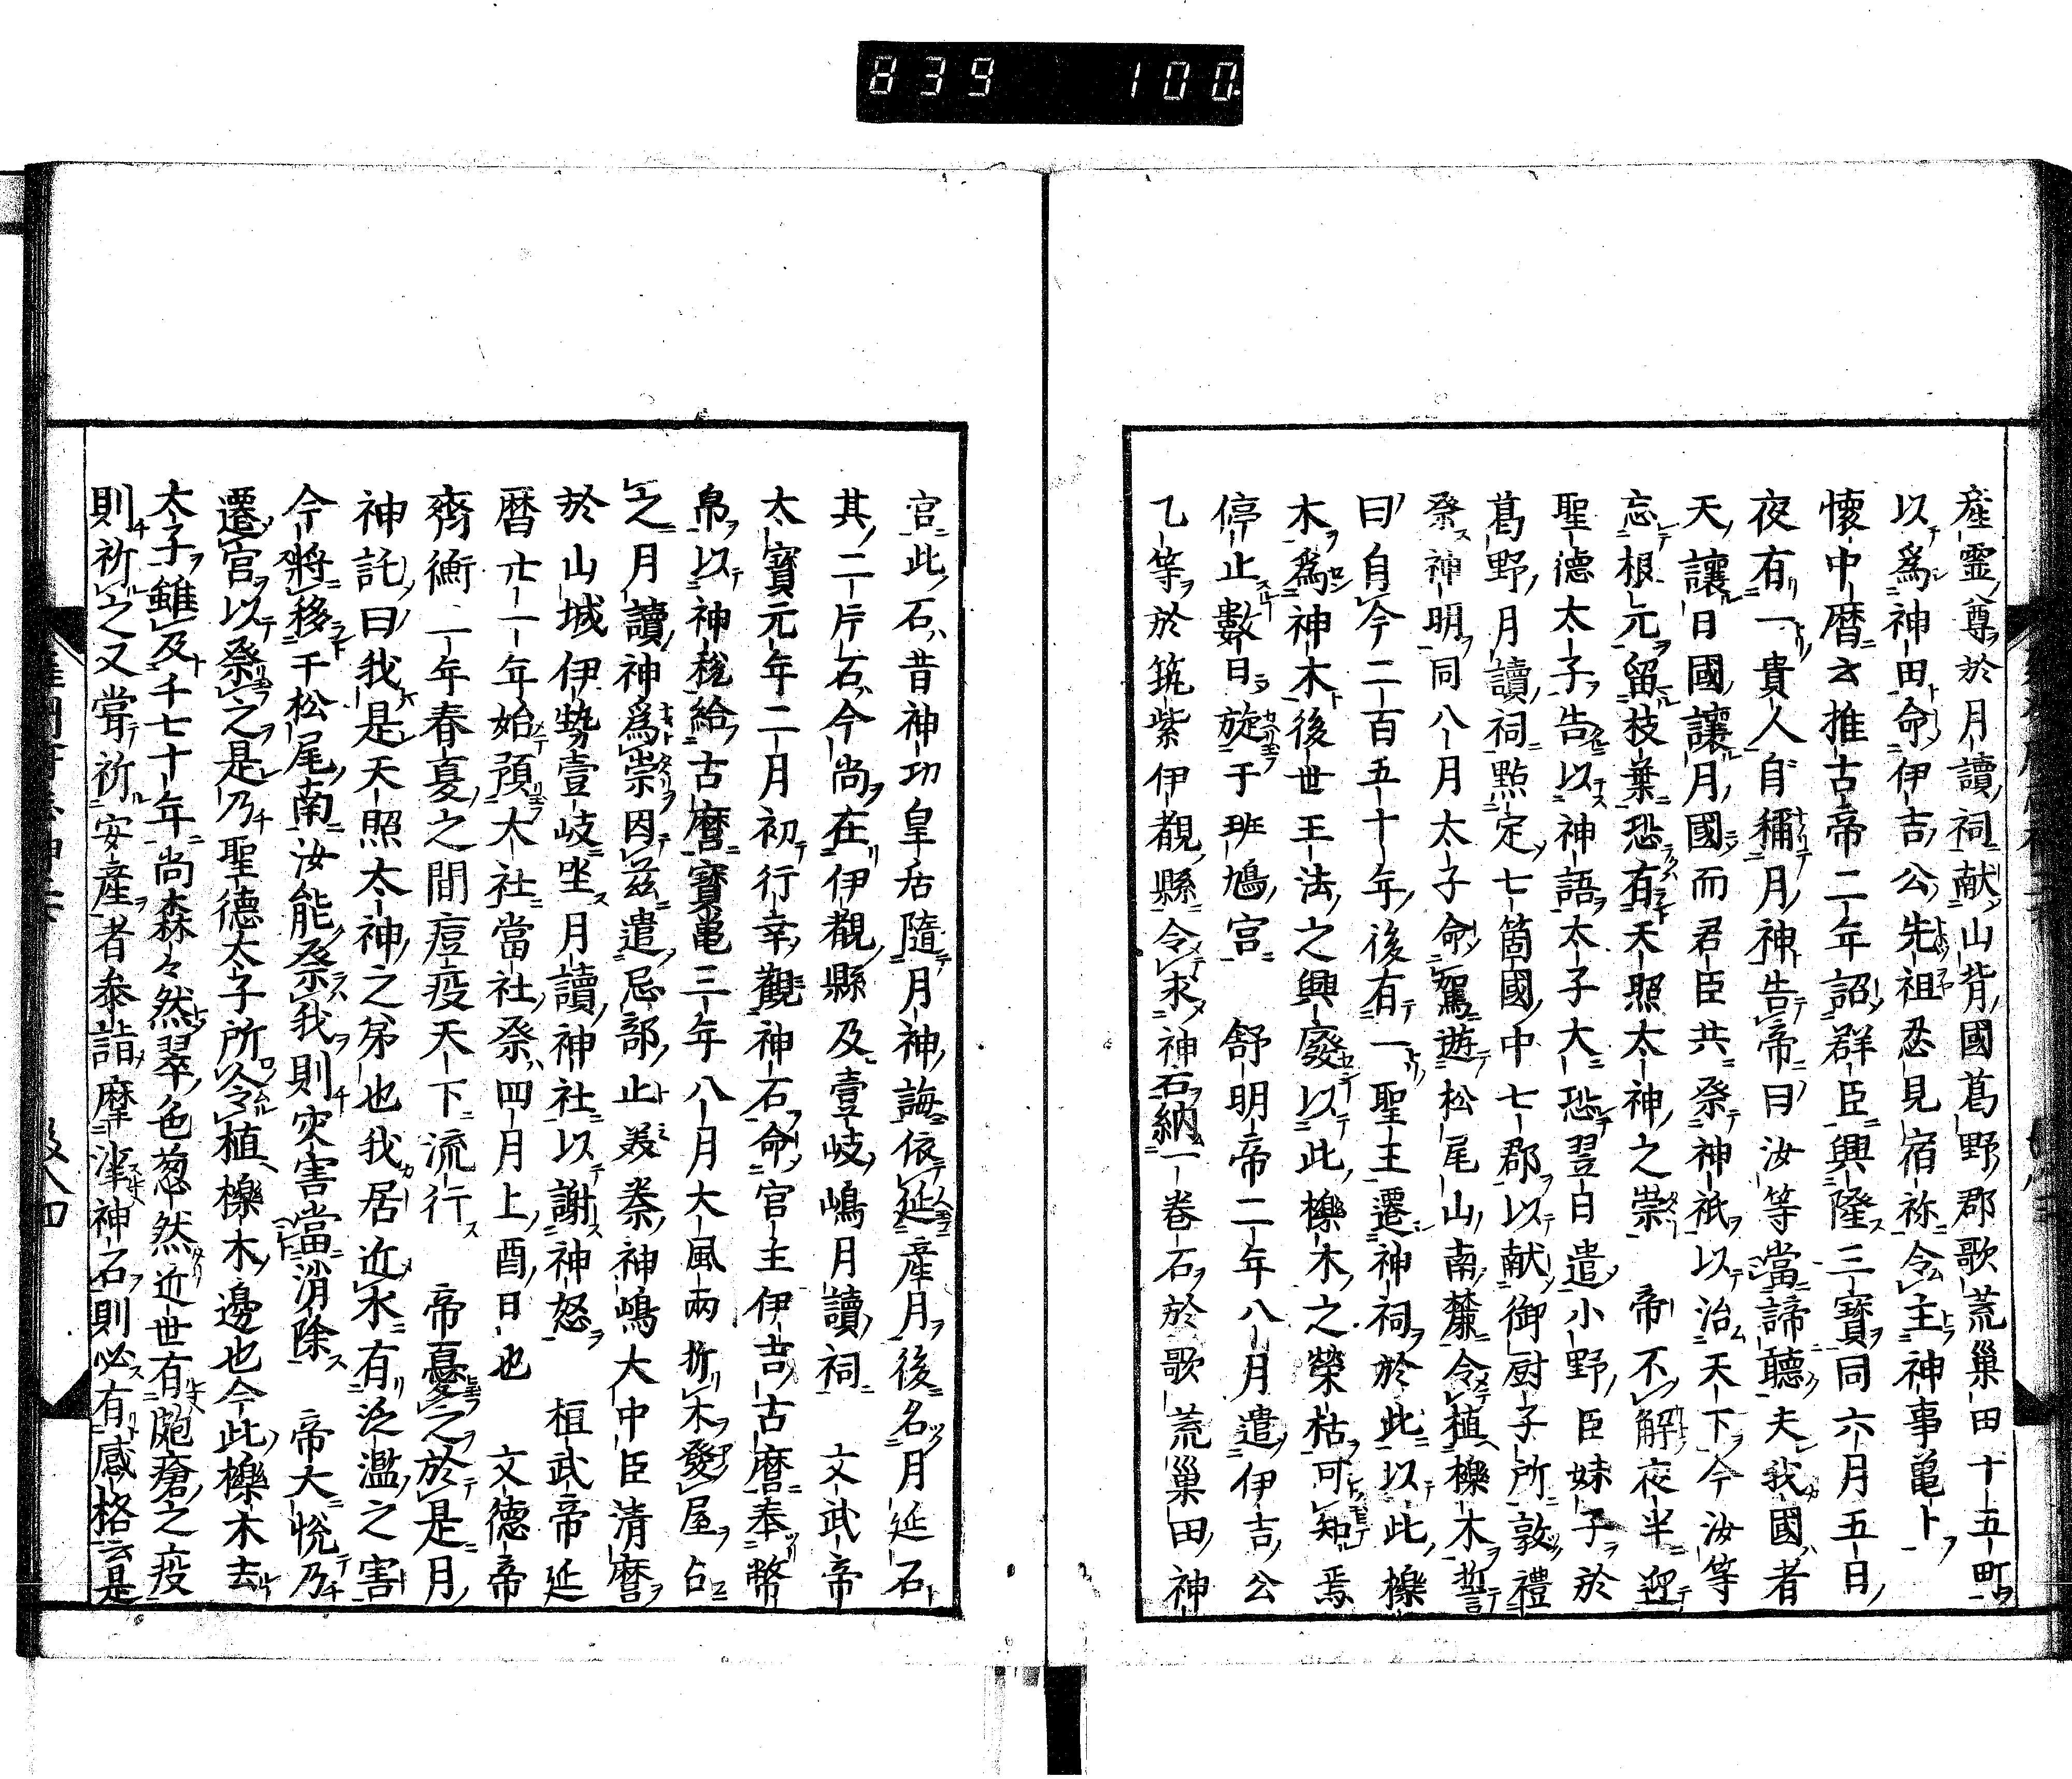 839 100
産靈尊於月讀祠献山背國葛野郡歌荒巢田十五町
以爲神田命伊吉公先祖忍見宿祢令主神事亀卜
懷中暦云推古帝二年詔群臣興隆三寶同六月五日
夜有一貴人自稱月神告帝曰汝等當諦聽夫我國者
天讓日國讓月國而君臣共祭神祇以治天下今汝等
忘根元留枝葉恐有天照太神之崇 帝不解夜半迎
聖德太子告以神語太子大恐翌日遣小野臣妹子於
葛野月讀祠點定七箇國中七郡以献御厨子所敦禮
祭神明同八月太子命駕遊松尾山南麓令植櫟木誓
曰自今二百五十年後有一聖主遷神祠於此以此櫟
木爲神木後世王法之興廢以此櫟木之榮枯可知焉
停止數日旋于班鳩宮 舒明帝二年八月遣伊吉公
乙等於筑紫伊覩縣令求神石納一卷石於歌荒巢田神
宮此石昔神功皇后隨月神誨依延産月後名月延石
其二片石今尚在伊覩縣及壹岐嶋月讀祠 文武帝
太寶元年二月初行幸觀神石命官主伊吉古暦奉幣
帛以神税給古麿寶亀三年八月大風雨折木發屋占
之月讀神爲崇因茲遣忌部止美奏神嶋大中臣清麿
於山城伊勢壹岐坐月讀神社以謝神怒 桓武帝延
暦廾一年始預大社當社祭四月上酉日也 文德帝
齊衡二年春夏之間痘疫天下流行 帝憂之於是月
神託曰我是天照太神之弟也我居近水有泛濫之害
今將移千松尾南汝能祭我則灾害當消除 帝大悅乃
遷宮以祭之是乃聖德太子所令植櫟木邊也今此櫟木去
太子雖及千七十年尚森々然翠色葱然近世有皰瘡之疫
則祈之又當祈安産者參詣摩沙神石則必有感格云是